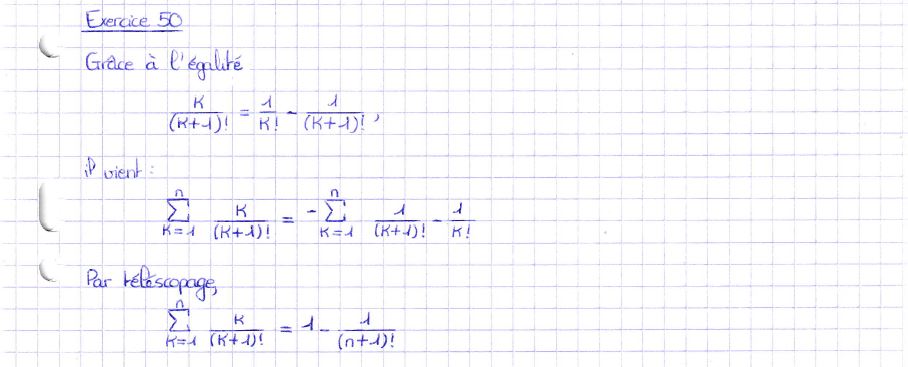 Exercice 50
Grâce à l'égalité
K/(K+1)! = 1/K! - 1/(K+1)! ,
il vient :
∑_{K=1}^{n} K/(K+1)! = -∑_{K=1}^{n} 1/(K+1)! - 1/K!
Par téléscopage,
∑_{K=1}^{n} K/(K+1)! = 1 - 1/(n+1)!